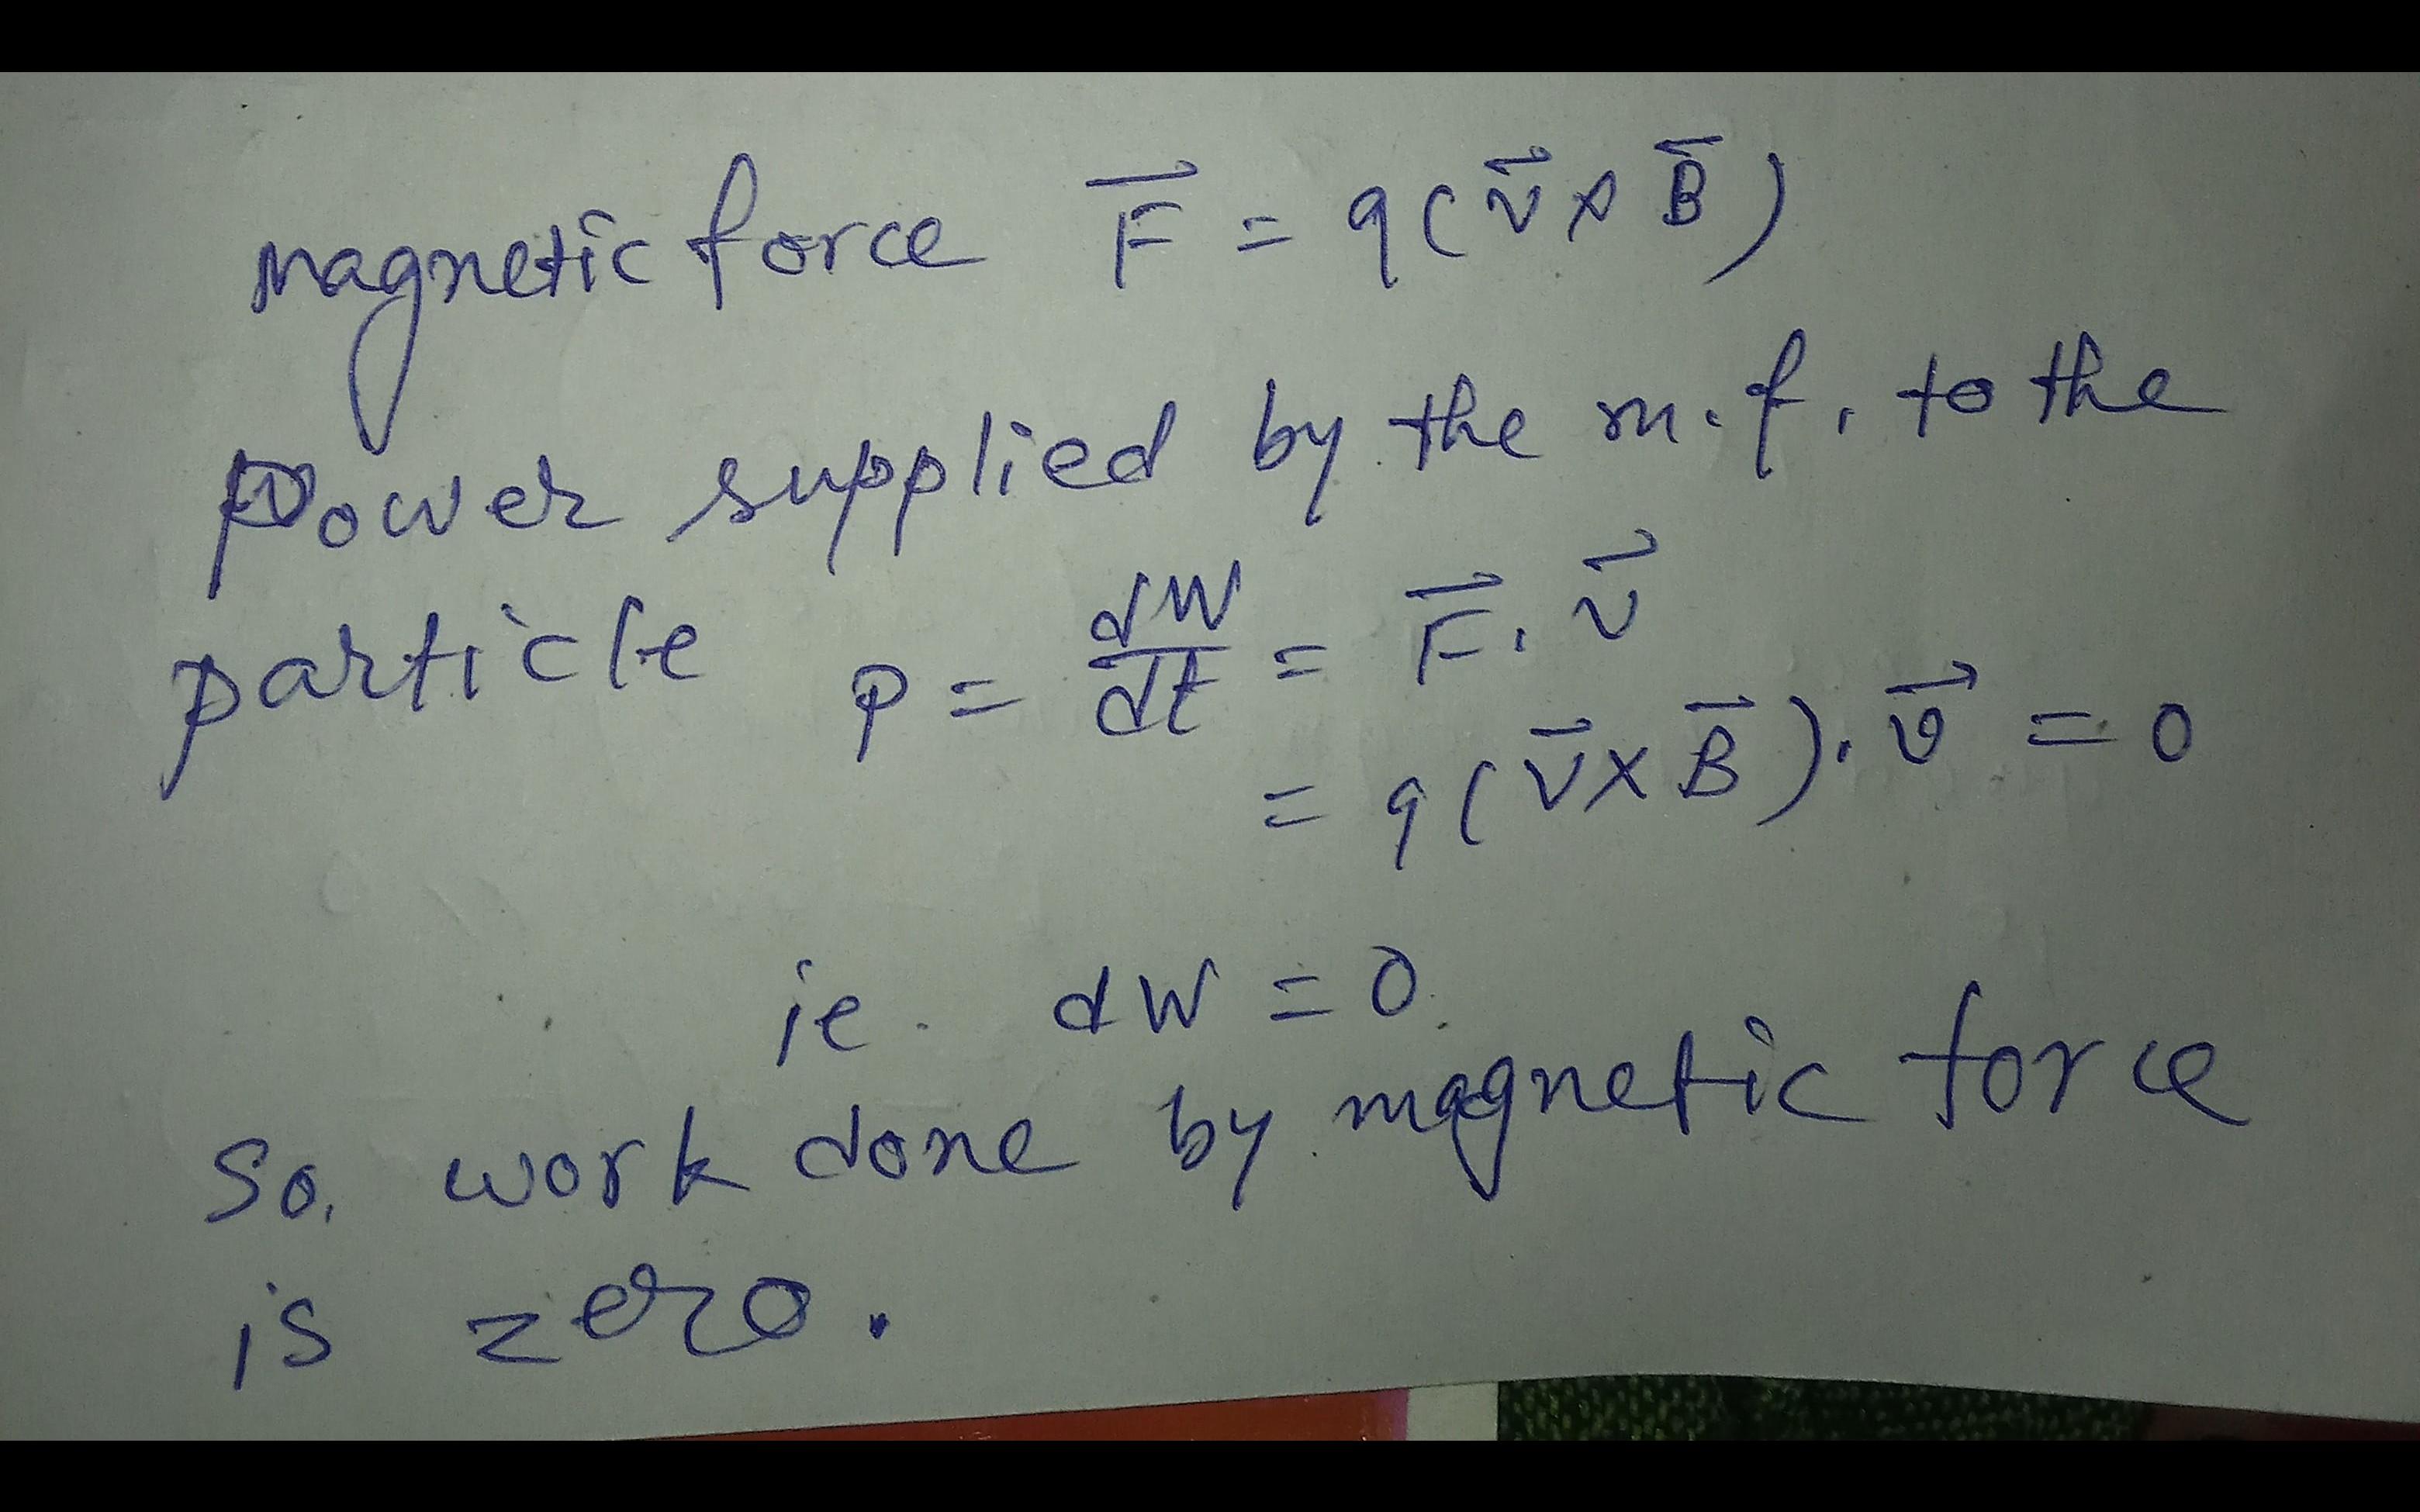 magnetic force F⃗ = q(v⃗ × B⃗)
Power supplied by the m.f. to the
particle P = dW/dt = F⃗ . v⃗
= q(v⃗ × B⃗) . v⃗ = 0
ie. dW = 0.
So, work done by magnetic force
is zero.